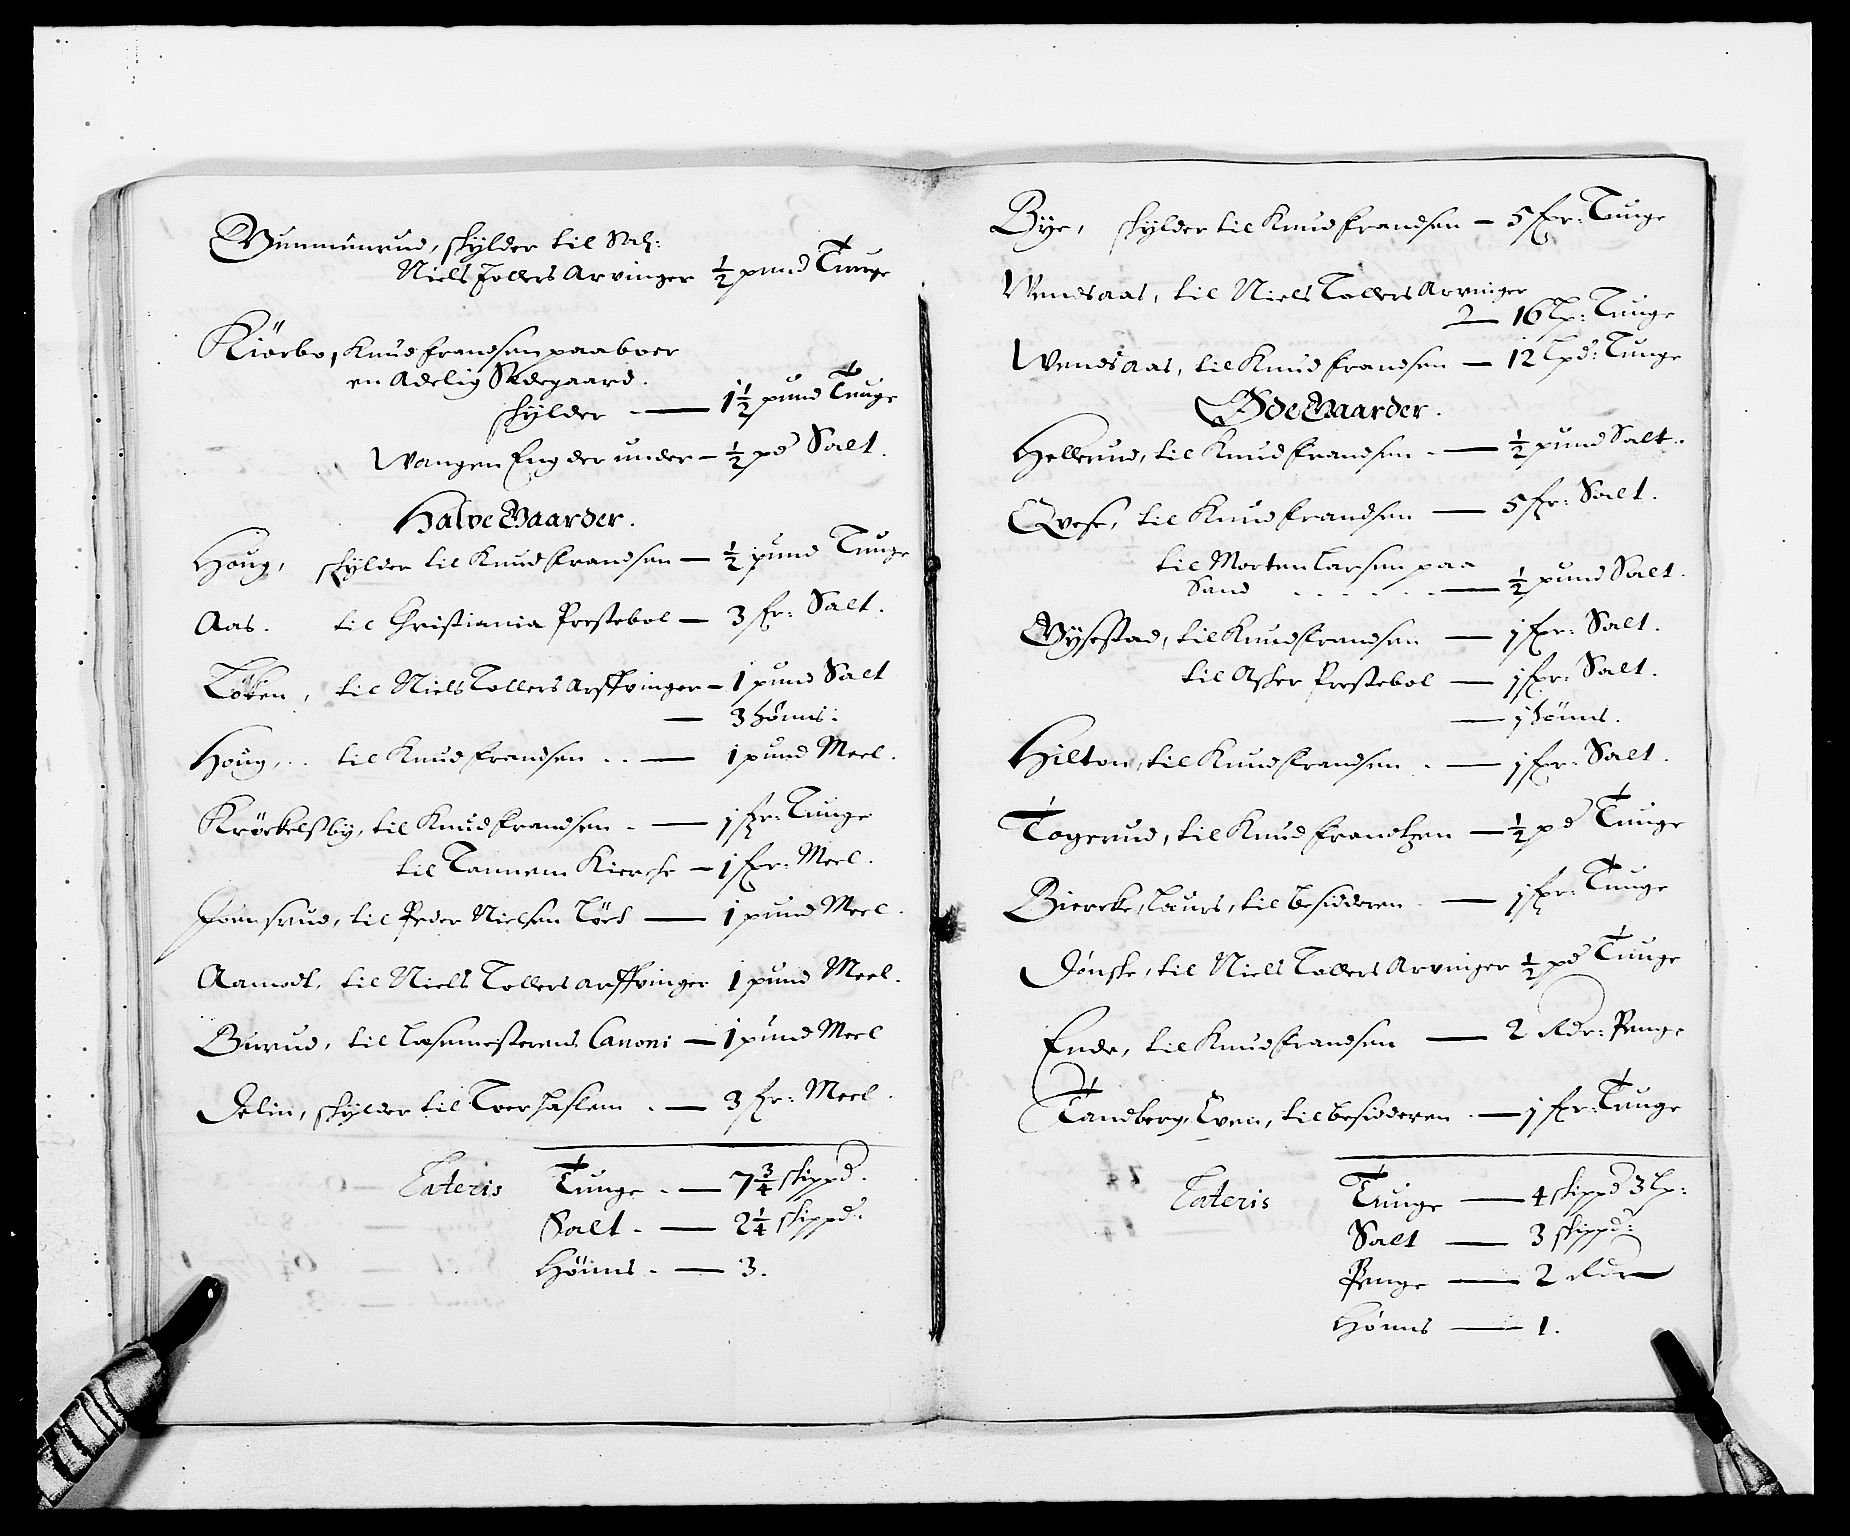 Gunmunrud, skylder til Sal:
Niels Tollers Arvinger ½ pund Tunge
Kiørbo, Knud frandsen paaboer
en Adelig Sædegaard.
skylder - — 1½ pund Tunge
Wangen Eng der under — ½ pd Salt.
Halve Gaarder.
Houg, skylder til Knud frandsen — ½ pund Tunge
Aas. til Christiania Prestebol — 3 fr: Salt.
Løken, til Niels Tollers Arffvinger — 1 pund Salt
— 3 hønns:
Houg, .. til Knud frandsen .. — 1 pund Meel.
Krøckelsby, til Knud frandsen - — 1 fr: Tunge
til Tannem Kiercke — 1 fr: Meel.
Jonnsrud, til Peder Nielsen Løck — 1 pund Meel.
Aamodt, til Niels Tollers arffvinger 1 pund Meel.
Burud, til Læsemesterens Canoni — 1 pund Meel
Delin, skylder til Tver haslem . — 3 fr: Meel.
Lateris Tunge . — 7¾ skippd.
Salt - — 2¼ skippd:
Hønns - — 3.
Bye, skylder til Knud frandsen — 5 fr: Tunge
Wendsaas, til Niels Tollers Arvinger
— 16 lp: Tunge
Wendsaas, til Knud frandsen — 12 lpd: Tunge
Øde Gaarder.
Hellerud, til Knud frandsen - — ½ pund Salt.
Qvese, til Knud frandsen — 5 fr: Salt.
til Morten Larsen paa
Sand . . . . . — ½ pund Salt.
Gysestad, til Knud frandsen — 1 fr: Salt.
til Asker Prestebol — 1 fr: Salt.
— 1 hønns.
Hilton, til Knud frandsen . — 1 fr: Salt.
Togerud, til Knud frandtzen — ½ pd Tunge
Biercke, Laurs, til besidderen . — 1 fr: Tunge
Dønske, til Niels Tollers Arvinger ½ pd Tunge
Ende, til Knud frandsen — 2 Rdr: Penge
Tandberg, Even, til besidderen . — 1 fr: Tunge
Lateris Tunge — 4 skippd 3 lp:
Salt — 3 skippd:
Penge — 2 Rdr
Hønns — 1.